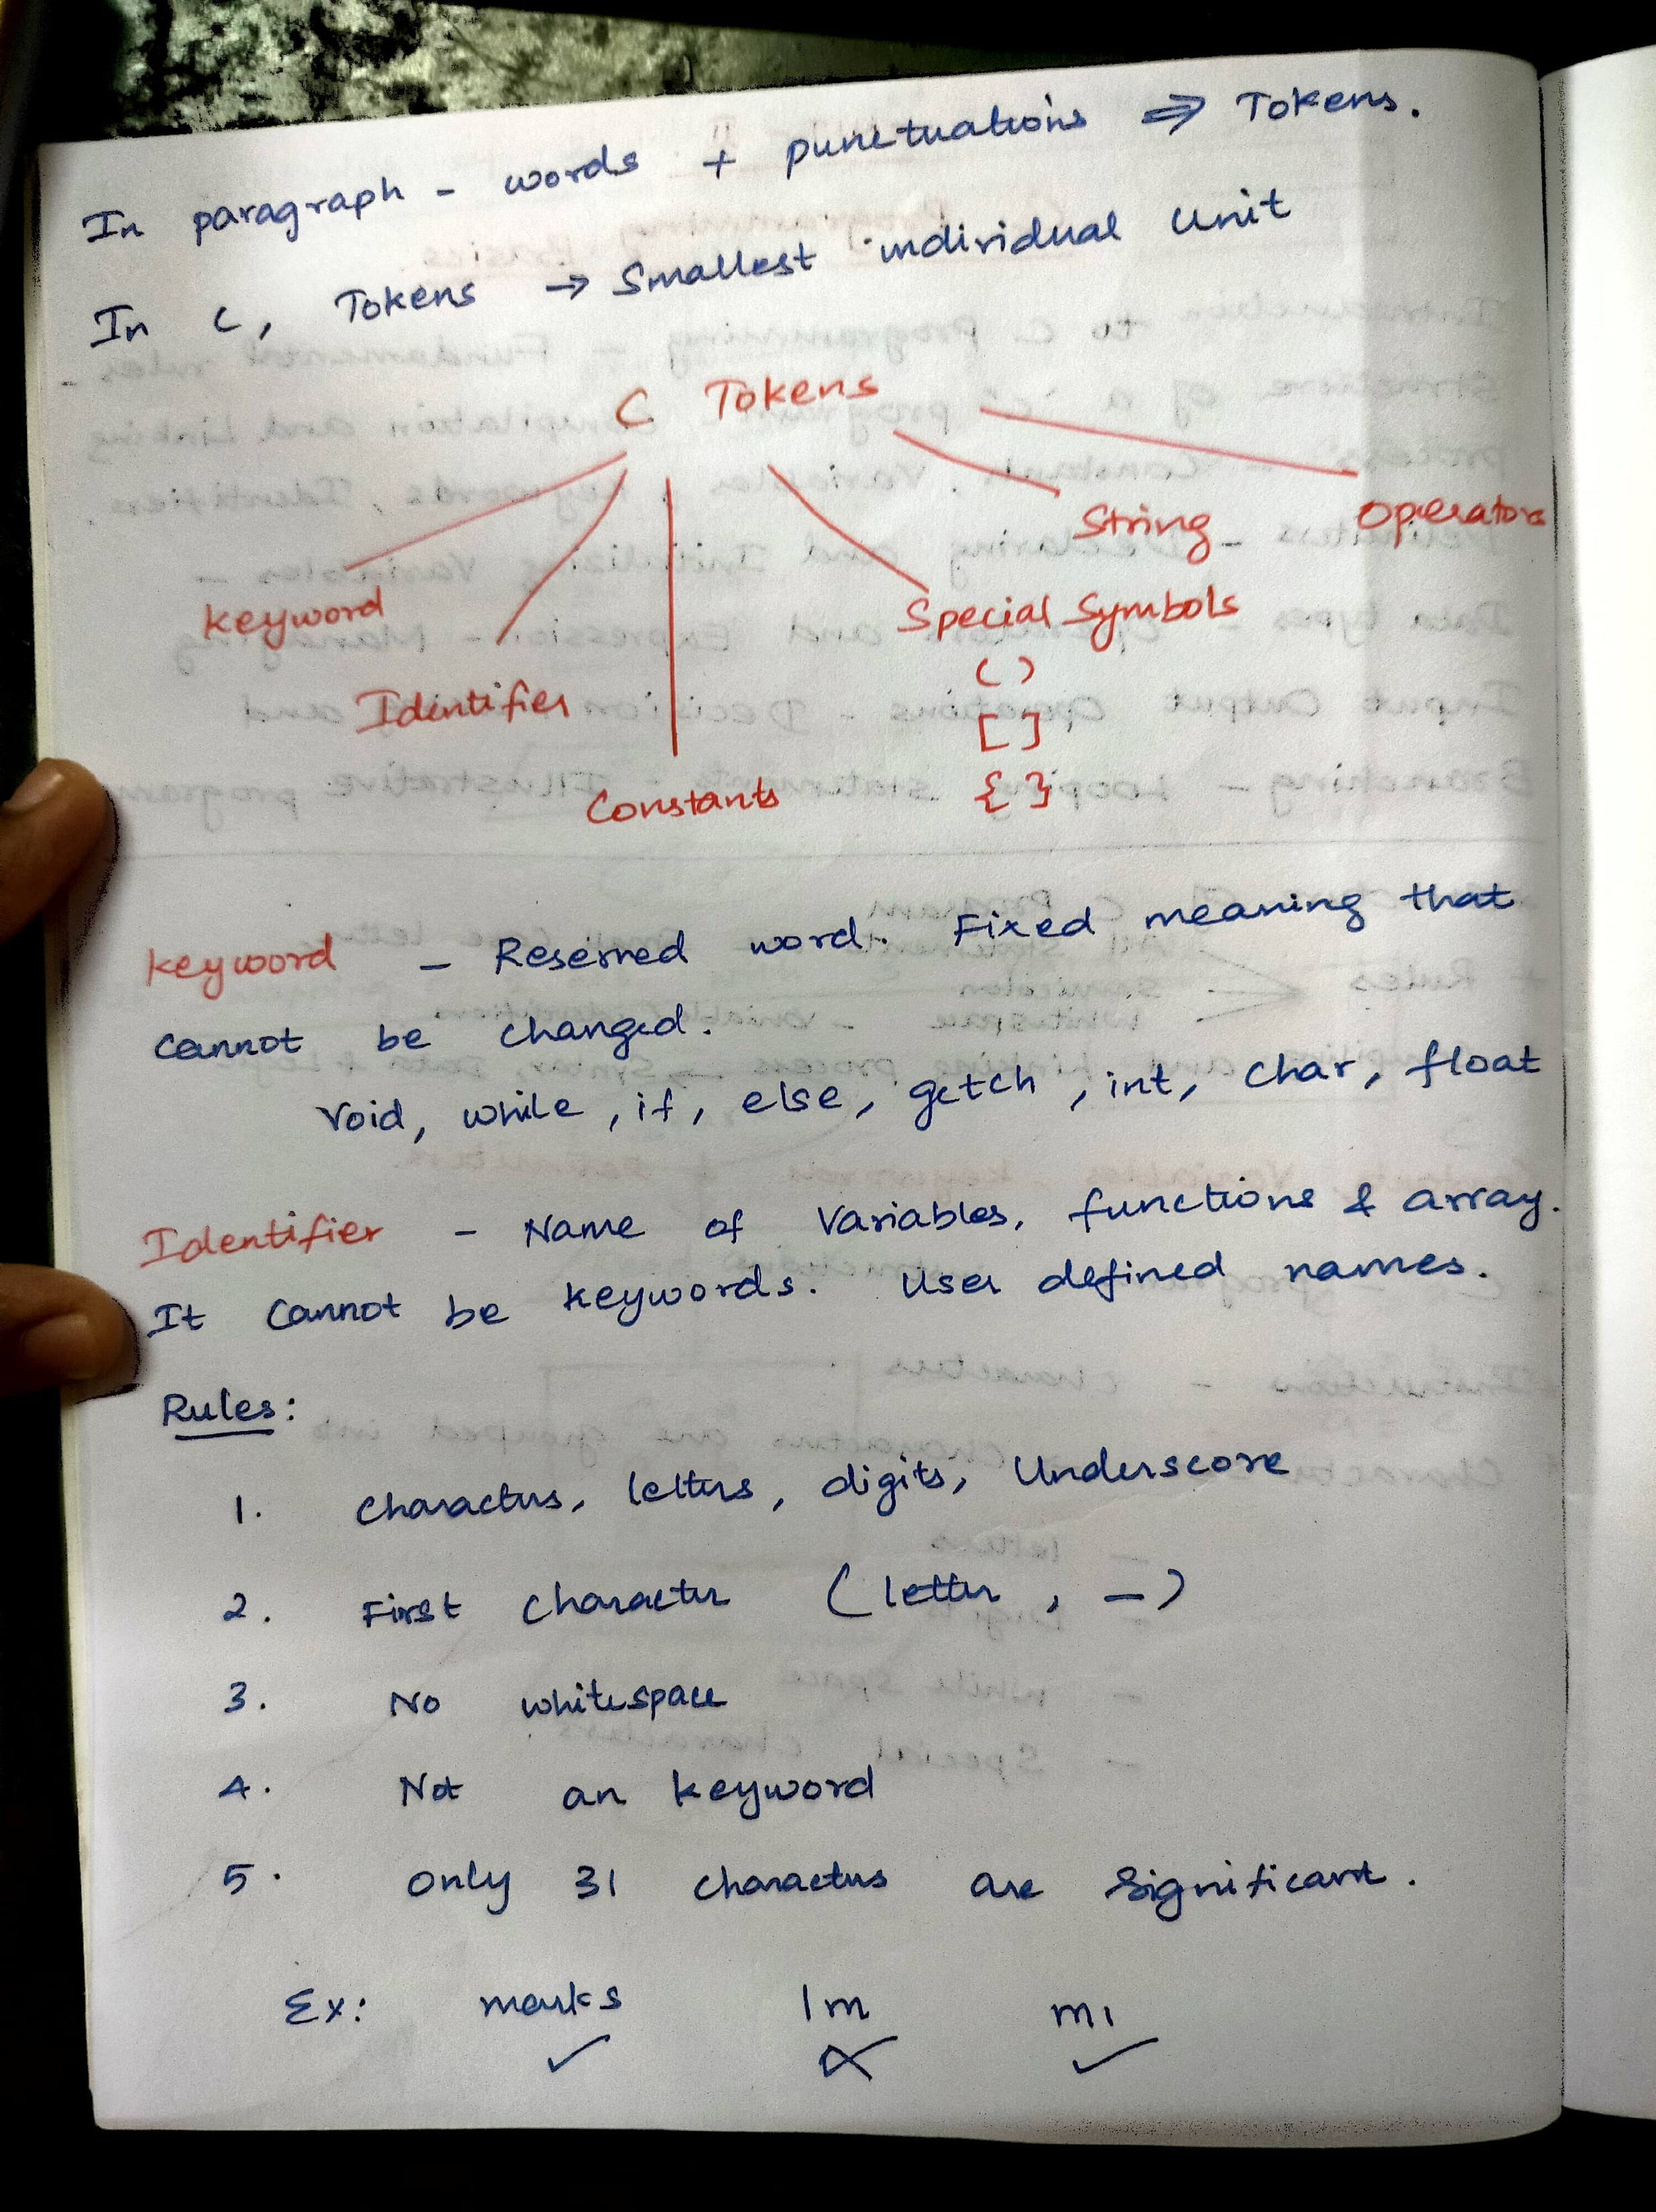 In paragraph - words + punctuations ⇒ Tokens.
In C, Tokens → Smallest individual Unit
C Tokens
String
Operators
Keyword
Special Symbols
( )
Identifier
[ ]
Constants
{ }
Keyword - Reserved word. Fixed meaning that
cannot be changed.
Void, while, if, else, getch, int, char, float
Identifier - Name of Variables, functions & array.
It cannot be keywords. User defined names.
Rules:
1. Characters, letters, digits, Underscore
2. First character (letter, _)
3. No whitespace
4. Not an keyword
5. Only 31 characters are significant.
Ex: marks 1m m1
✓ ✗ ✓